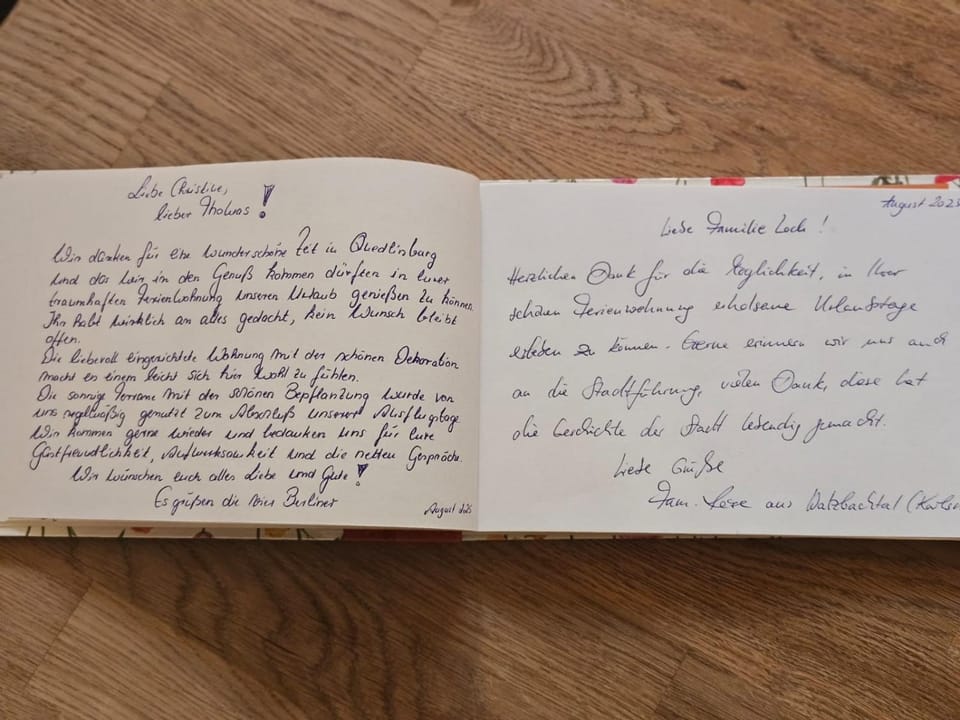 Liebe Christine,
lieber Thomas!
Wir danken für eine wunderschöne Zeit in Quedlinburg
und das wir in den Genuß kommen dürften in eurer
traumhaften Ferienwohnung unseren Urlaub genießen zu können.
Ihr habt wirklich an alles gedacht, kein Wunsch bleibt
offen.
Die liebevoll eingerichtete Wohnung mit der schönen Dekoration
macht es einem leicht sich hier wohl zu fühlen.
Die sonnige Terrasse mit der schönen Bepflanzung wurde von
uns regelmäßig genutzt zum Abschluß unserer Ausflugstage.
Wir kommen gerne wieder und bedanken uns für eure
Gastfreundlichkeit, Aufmerksamkeit und die netten Gespräche.
Wir wünschen euch alles Liebe und Gute!
Es grüßen die vier Berliner
August
August 2025
Liebe Familie Loch!
Herzlichen Dank für die Möglichkeit, in Ihrer
schönen Ferienwohnung erholsame Urlaubstage
erleben zu können. Gerne erinnern wir uns auch
an die Stadtführung, vielen Dank, diese hat
die Geschichte der Stadt lebendig gemacht.
Liebe Grüße
Fam. aus Walzbachtal (Karlsr